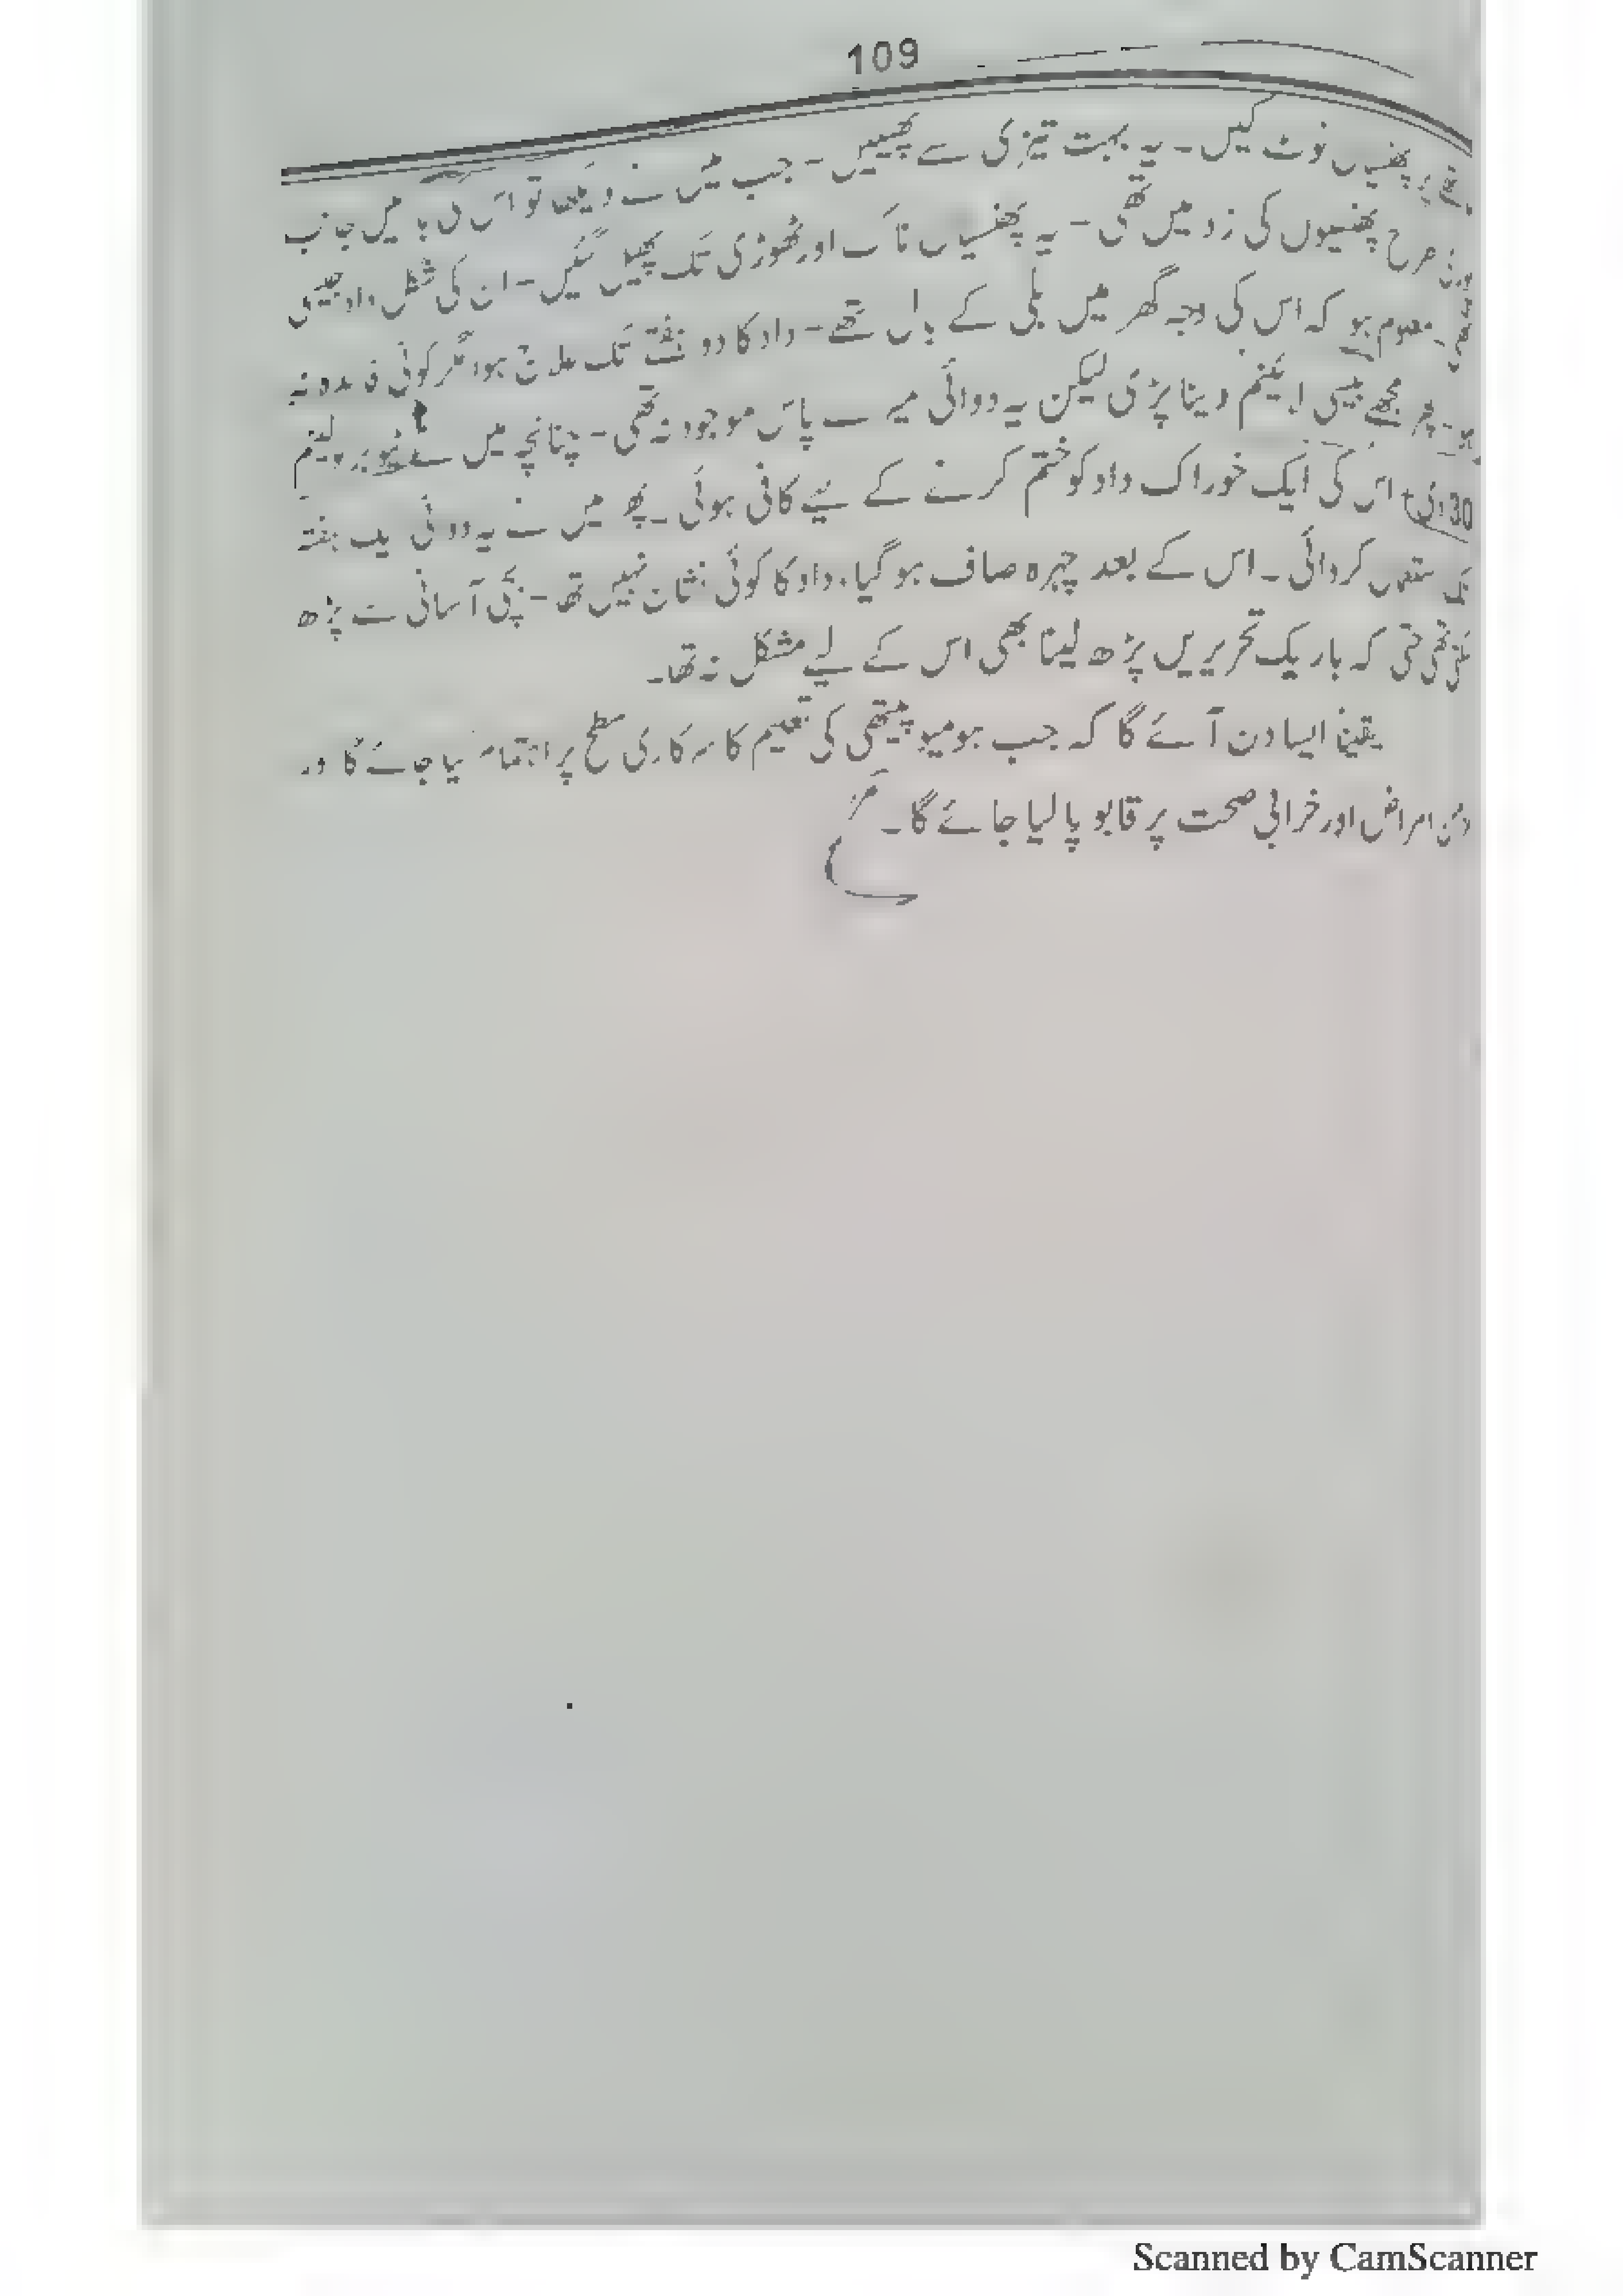 109
پھنسیاں نوٹ کیں۔ یہ بہت تیزی سے پھیلیں۔ جب میں نے دیکھا تو اس کی بائیں جانب
طرح پھنسیوں کی زد میں تھی۔ یہ پھنسیاں ناک اور ٹھوڑی تک پھیل گئیں۔ ان کی شکل داد جیسی
معلوم ہوا کہ اس کی وجہ گھر میں بلی کے بال تھے۔ داد کا دو ہفتے تک علاج ہوا مگر کوئی فائدہ نہ
ہوا۔ پھر مجھے دینا پڑی لیکن یہ دوائی میرے پاس موجود نہ تھی۔ چنانچہ میں نے ٹیوبرکولینم
30 دی۔ اس کی ایک خوراک داد کو ختم کرنے کے لیے کافی ہوئی۔ پھر میں نے یہ دوائی ایک ہفتہ
تک استعمال کروائی۔ اس کے بعد چہرہ صاف ہو گیا، داد کا کوئی نشان نہیں تھا۔ بچی آسانی سے پڑھ
سکتی تھی حتیٰ کہ باریک تحریریں پڑھ لینا بھی اس کے لیے مشکل نہ تھا۔
یقیناً ایسا دن آئے گا کہ جب ہومیوپیتھی کی تعلیم کا سرکاری سطح پر اہتمام کیا جائے گا اور
امراض اور خرابی صحت پر قابو پا لیا جائے گا۔
Scanned by CamScanner